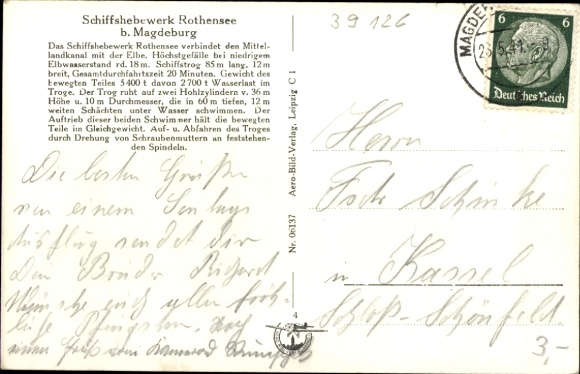 Schiffshebewerk Rothensee
b. Magdeburg
Das Schiffshebewerk Rothensee verbindet den Mittel-
landkanal mit der Elbe. Höchstgefälle bei niedrigem
Elbwasserstand rd. 18 m. Schiffstrog 85 m lang, 12 m
breit, Gesamtdurchfahrtszeit 20 Minuten. Gewicht des
bewegten Teiles 5400 t davon 2700 t Wasserlast im
Troge. Der Trog ruht auf zwei Hohlzylindern v. 36 m
Höhe u. 10 m Durchmesser, die in 60 m tiefen, 12 m
weiten Schächten unter Wasser schwimmen. Der
Auftrieb dieser beiden Schwimmer hält die bewegten
Teile im Gleichgewicht. Auf- u. Abfahren des Troges
durch Drehung von Schraubenmuttern an feststehen-
den Spindeln.
Die besten Grüße
von einem Sonntags
Ausflug sendet dir
Dein Bruder Richard
Wünsche euch allen fröh-
liche Pfingsten. Noch
einen Gruß vom Kamerad
Nr. 06137 Aero-Bild-Verlag, Leipzig C 1
4
39 126
MAGDE
6 6
Deutsches Reich
Herrn
in Kassel
Schloß-Schönfeld.
3,-